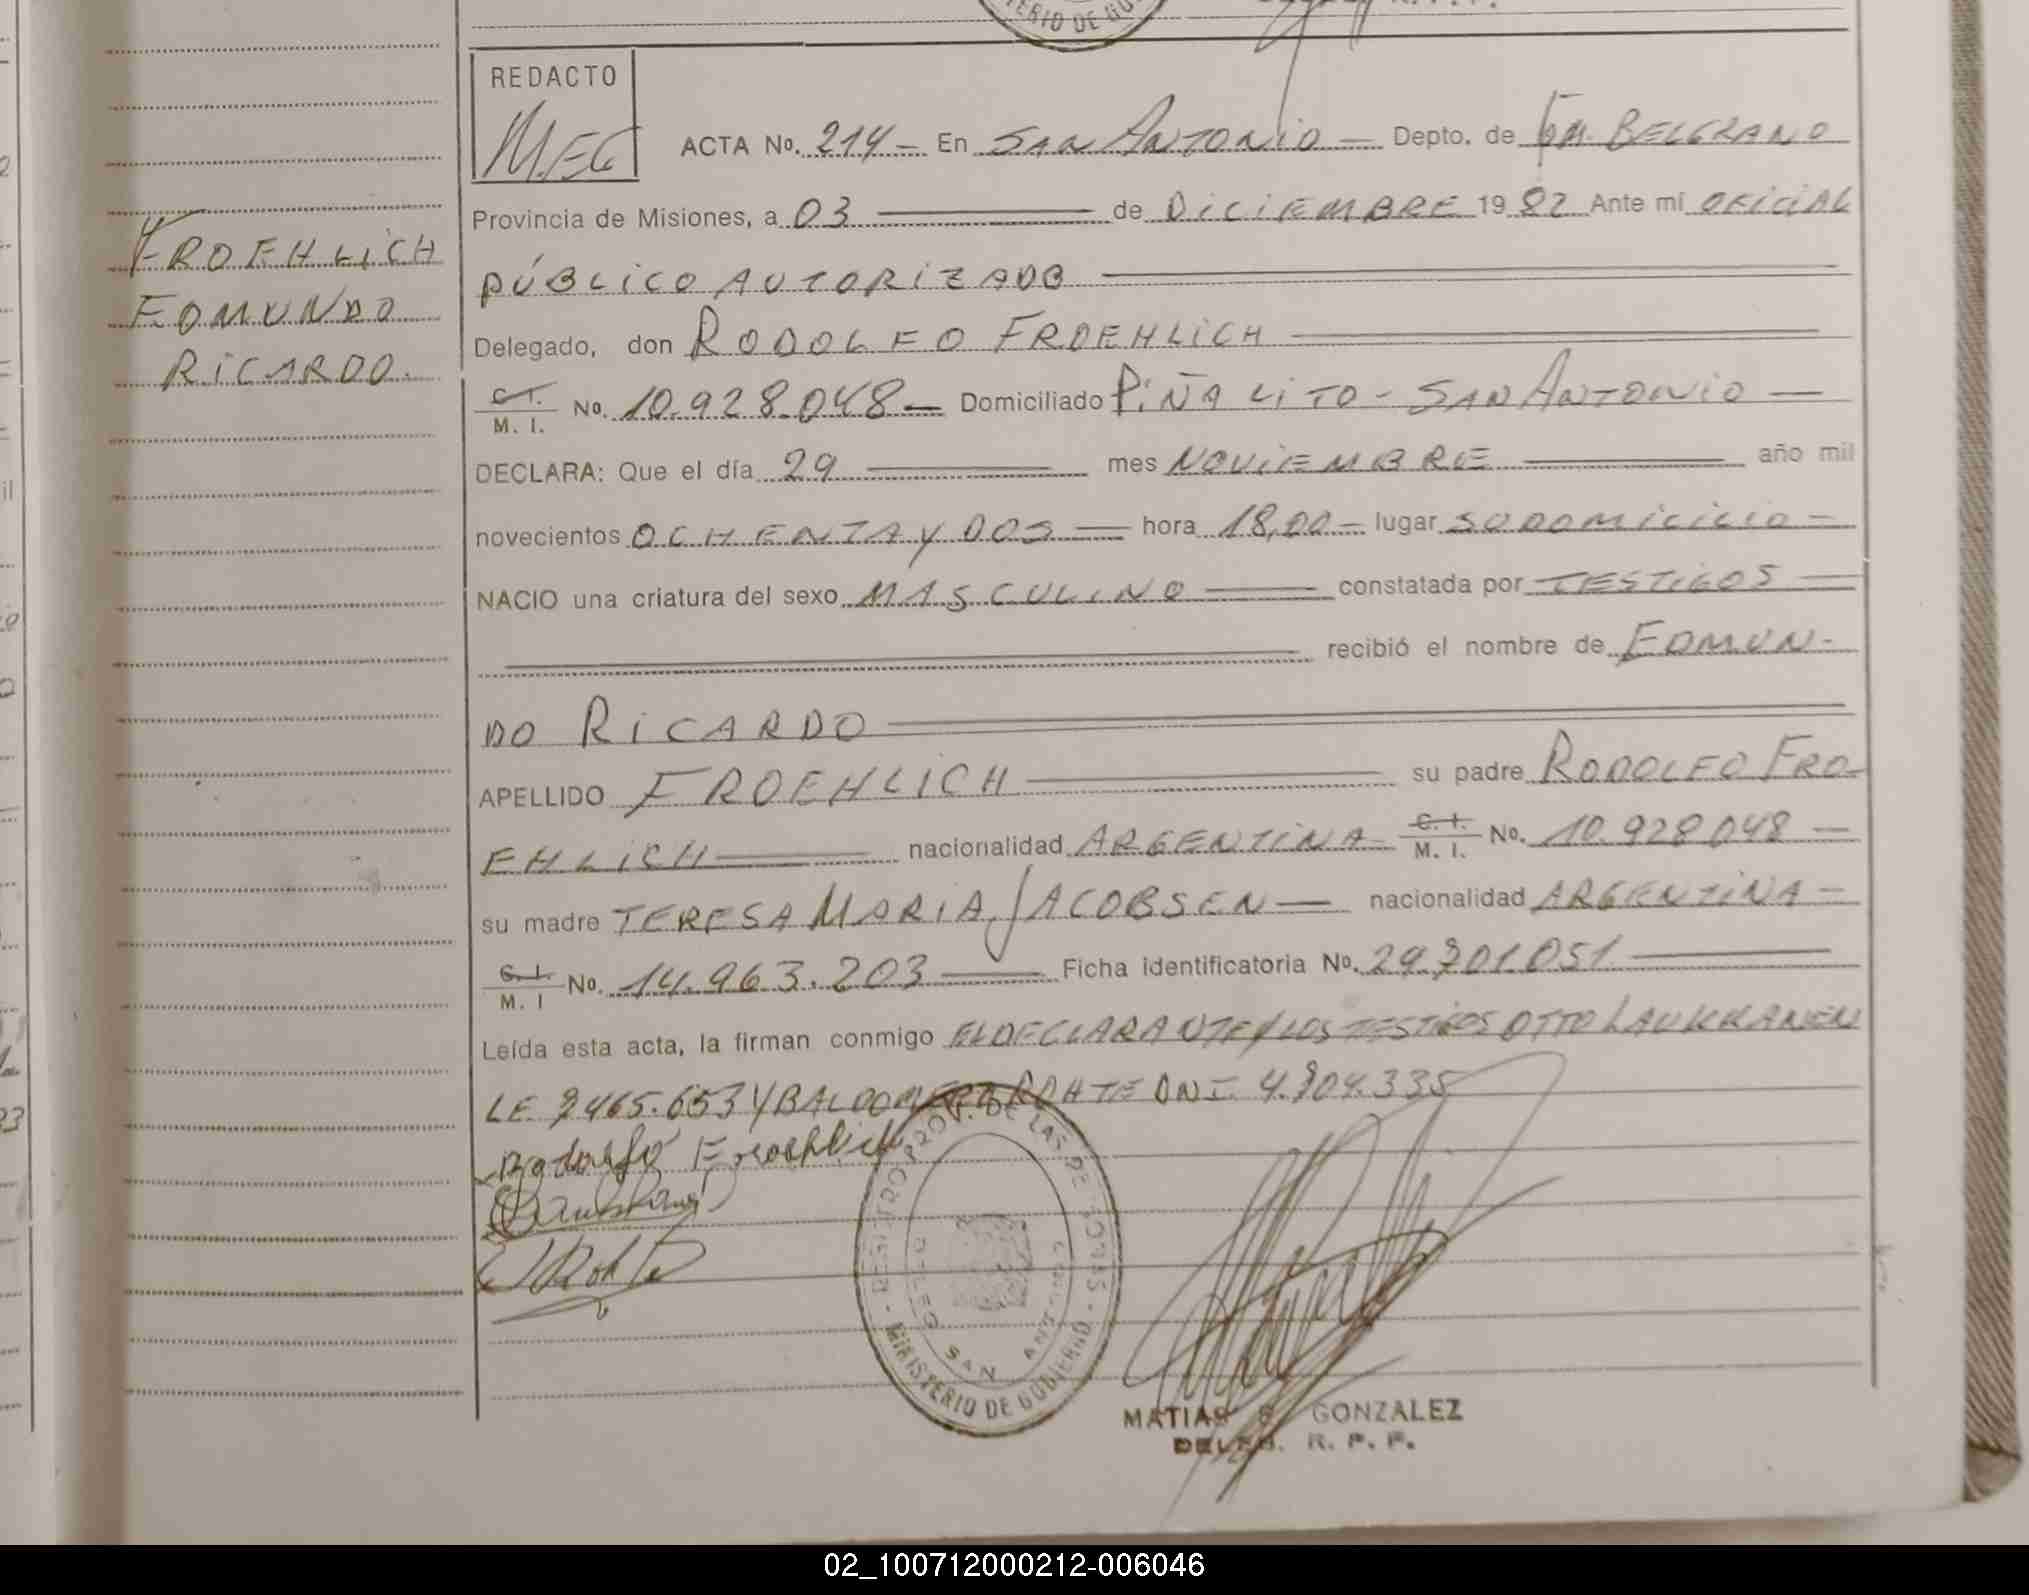 TERIO DE GO
REDACTO
M.EG
ACTA No. 214 - En SAN ANTONIO - Depto. de GM. BELGRANO
Provincia de Misiones, a 03 de DICIEMBRE 19 82 Ante mí OFICIAL
PÚBLICO AUTORIZADO
FROEHLICH
EDMUNDO
RICARDO.
Delegado, don RODOLFO FROEHLICH
C. I.
M. I. No. 10.928.048 - Domiciliado PIÑALITO - SAN ANTONIO -
DECLARA: Que el día 29 mes NOVIEMBRE año mil
novecientos OCHENTA Y DOS - hora 18,00 - lugar SU DOMICICIO -
NACIO una criatura del sexo MASCULINO constatada por TESTIGOS
recibió el nombre de EDMUN-
DO RICARDO
APELLIDO FROEHLICH su padre RODOLFO FRO-
EHLICH nacionalidad ARGENTINA C. I. M. I. No. 10.928048 -
su madre TERESA MARIA JACOBSEN - nacionalidad ARGENTINA -
C. I. M. I No. 14.963.203 Ficha identificatoria No. 29.701.051
Leída esta acta, la firman conmigo EL DECLARANTE Y LOS TESTIGOS OTTO LAUKKANEN
LE 7465.653 Y BALDOMERO ROHTE DNI. 4.904.335
Rodolfo Froehlich
REGISTRO PROV. DE LAS PERSONAS
DELEG. SAN ANTONIO
MINISTERIO DE GOBIERNO
MATIAS GONZALEZ
DELEG. R. P. P.
02_100712000212-006046